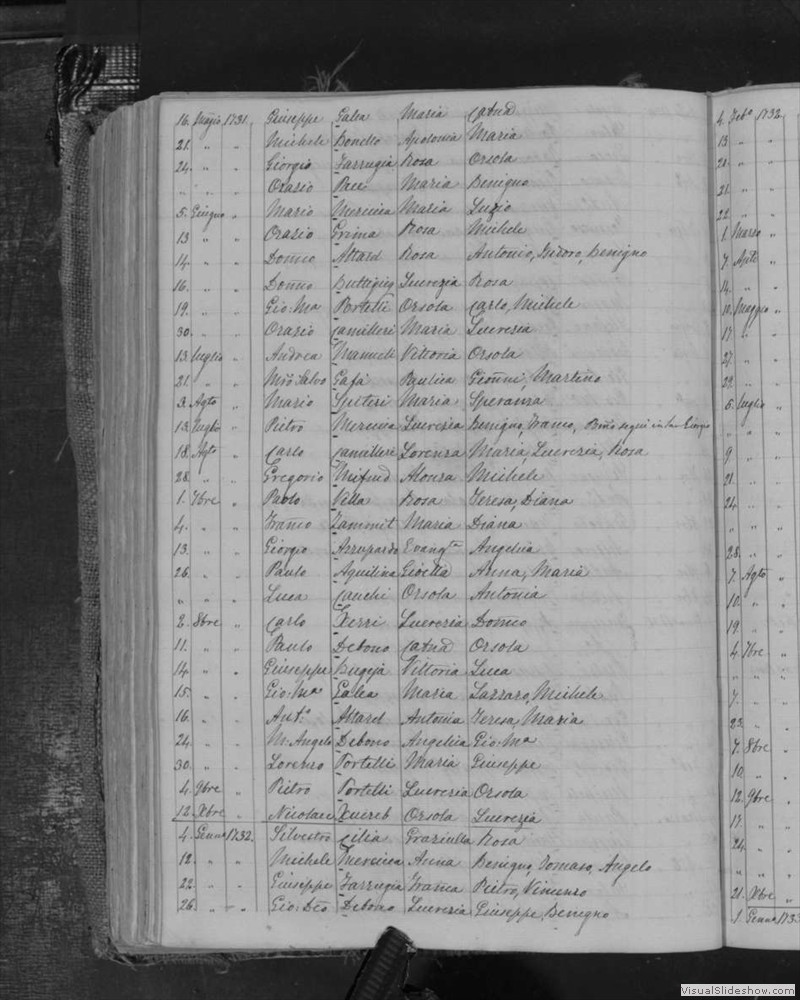 16. Magio 1731. Giuseppe Galea Maria Catnd
21. " " Michele Bonello Apolonia Maria
24. " " Giorgio Farrugia Rosa Orsola
" " " Orazio Pace Maria Benigno
5. Giugno " Mario Mercieca Maria Luzio
13 " " Orazio Grima Rosa Michele
14. " " Domco Attard Rosa Antonio, Isidoro, Benigno
16. " " Domco Buttigieg Lucrezia Rosa
19. " " Gio: Ma Portelli Orsola Carlo, Michele
30. " " Orazio Camilleri Maria Lucrezia
13. Luglio " Andrea Manueli Vittoria Orsola
21. " " Mro Salvo Gafa' Paulica Gionni, Martino
3. Agto " Mario Sulteri Maria Speranza
13. Luglio " Pietro Mercieca Lucrezia Benigno, Franco,
18. Agto " Carlo Camilleri Lorenza Maria, Lucrezia, Rosa
28. " " Gregorio Mifsud Alonza Michele
1. 7bre " Paolo Vella Rosa Teresa, Diana
4. " " Franco Zammit Maria Diana
13. " " Giorgio Azzupardo Evangta Angelica
26. " " Paulo Aquilina Gioella Anna, Maria
" " " Luca Cauchi Orsola Antonia
2. 8bre " Carlo Xerri Lucrezia Domco
11. " " Paulo Debono Catnd Orsola
14. " " Giuseppe Bugeja Vittoria Luca
15. " " Gio: Ma Galea Maria Lazzaro, Michele
16. " " Anto Attard Antonia Teresa, Maria
24. " " M: Angelo Debono Angelica Gio: Ma
30. " " Lorenzo Portelli Maria Giuseppe
4. 9bre " Pietro Portelli Lucrezia Orsola
12. Xbre " Nicolao Xuereb Orsola Lucrezia
4. Genno 1732. Silvestro Cilia Graziulla Rosa
12. " " Michele Mercieca Anna Benigno, Tomaso, Angelo
22. " " Giuseppe Farrugia Franca Pietro, Vincenzo
26. " " Gio: Dco Debono Lucrezia Giuseppe, Benigno
4. Febo 1732.
13 " "
20. " "
21. " "
22. " "
1. Marzo "
7. Aple "
14. " "
10. Maggio "
17 " "
27. " "
22. " "
5. Luglio "
" " "
9 " "
21. " "
24. " "
" " "
28. " "
7. Agto "
10. " "
19. " "
4. 7bre "
" " "
7. " "
23. " "
7. 8bre "
10. " "
12. 9bre "
17. " "
24. " "
" " "
21. Xbre "
1. Genno 1733
VisualSlideshow.com